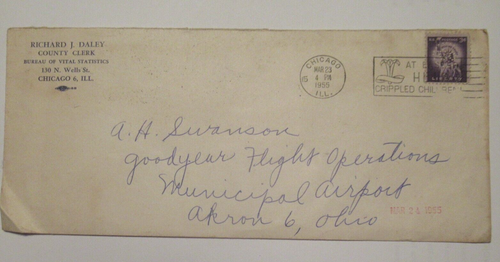 RICHARD J. DALEY
COUNTY CLERK
BUREAU OF VITAL STATISTICS
130 N. Wells St.
CHICAGO 6, ILL.
CHICAGO
MAR 23
4 PM
1955
ILL.
AT
CRIPPLED
A. H. Swanson
Goodyear Flight Operations
Municipal Airport
Akron 6, Ohio
MAR 24 1955